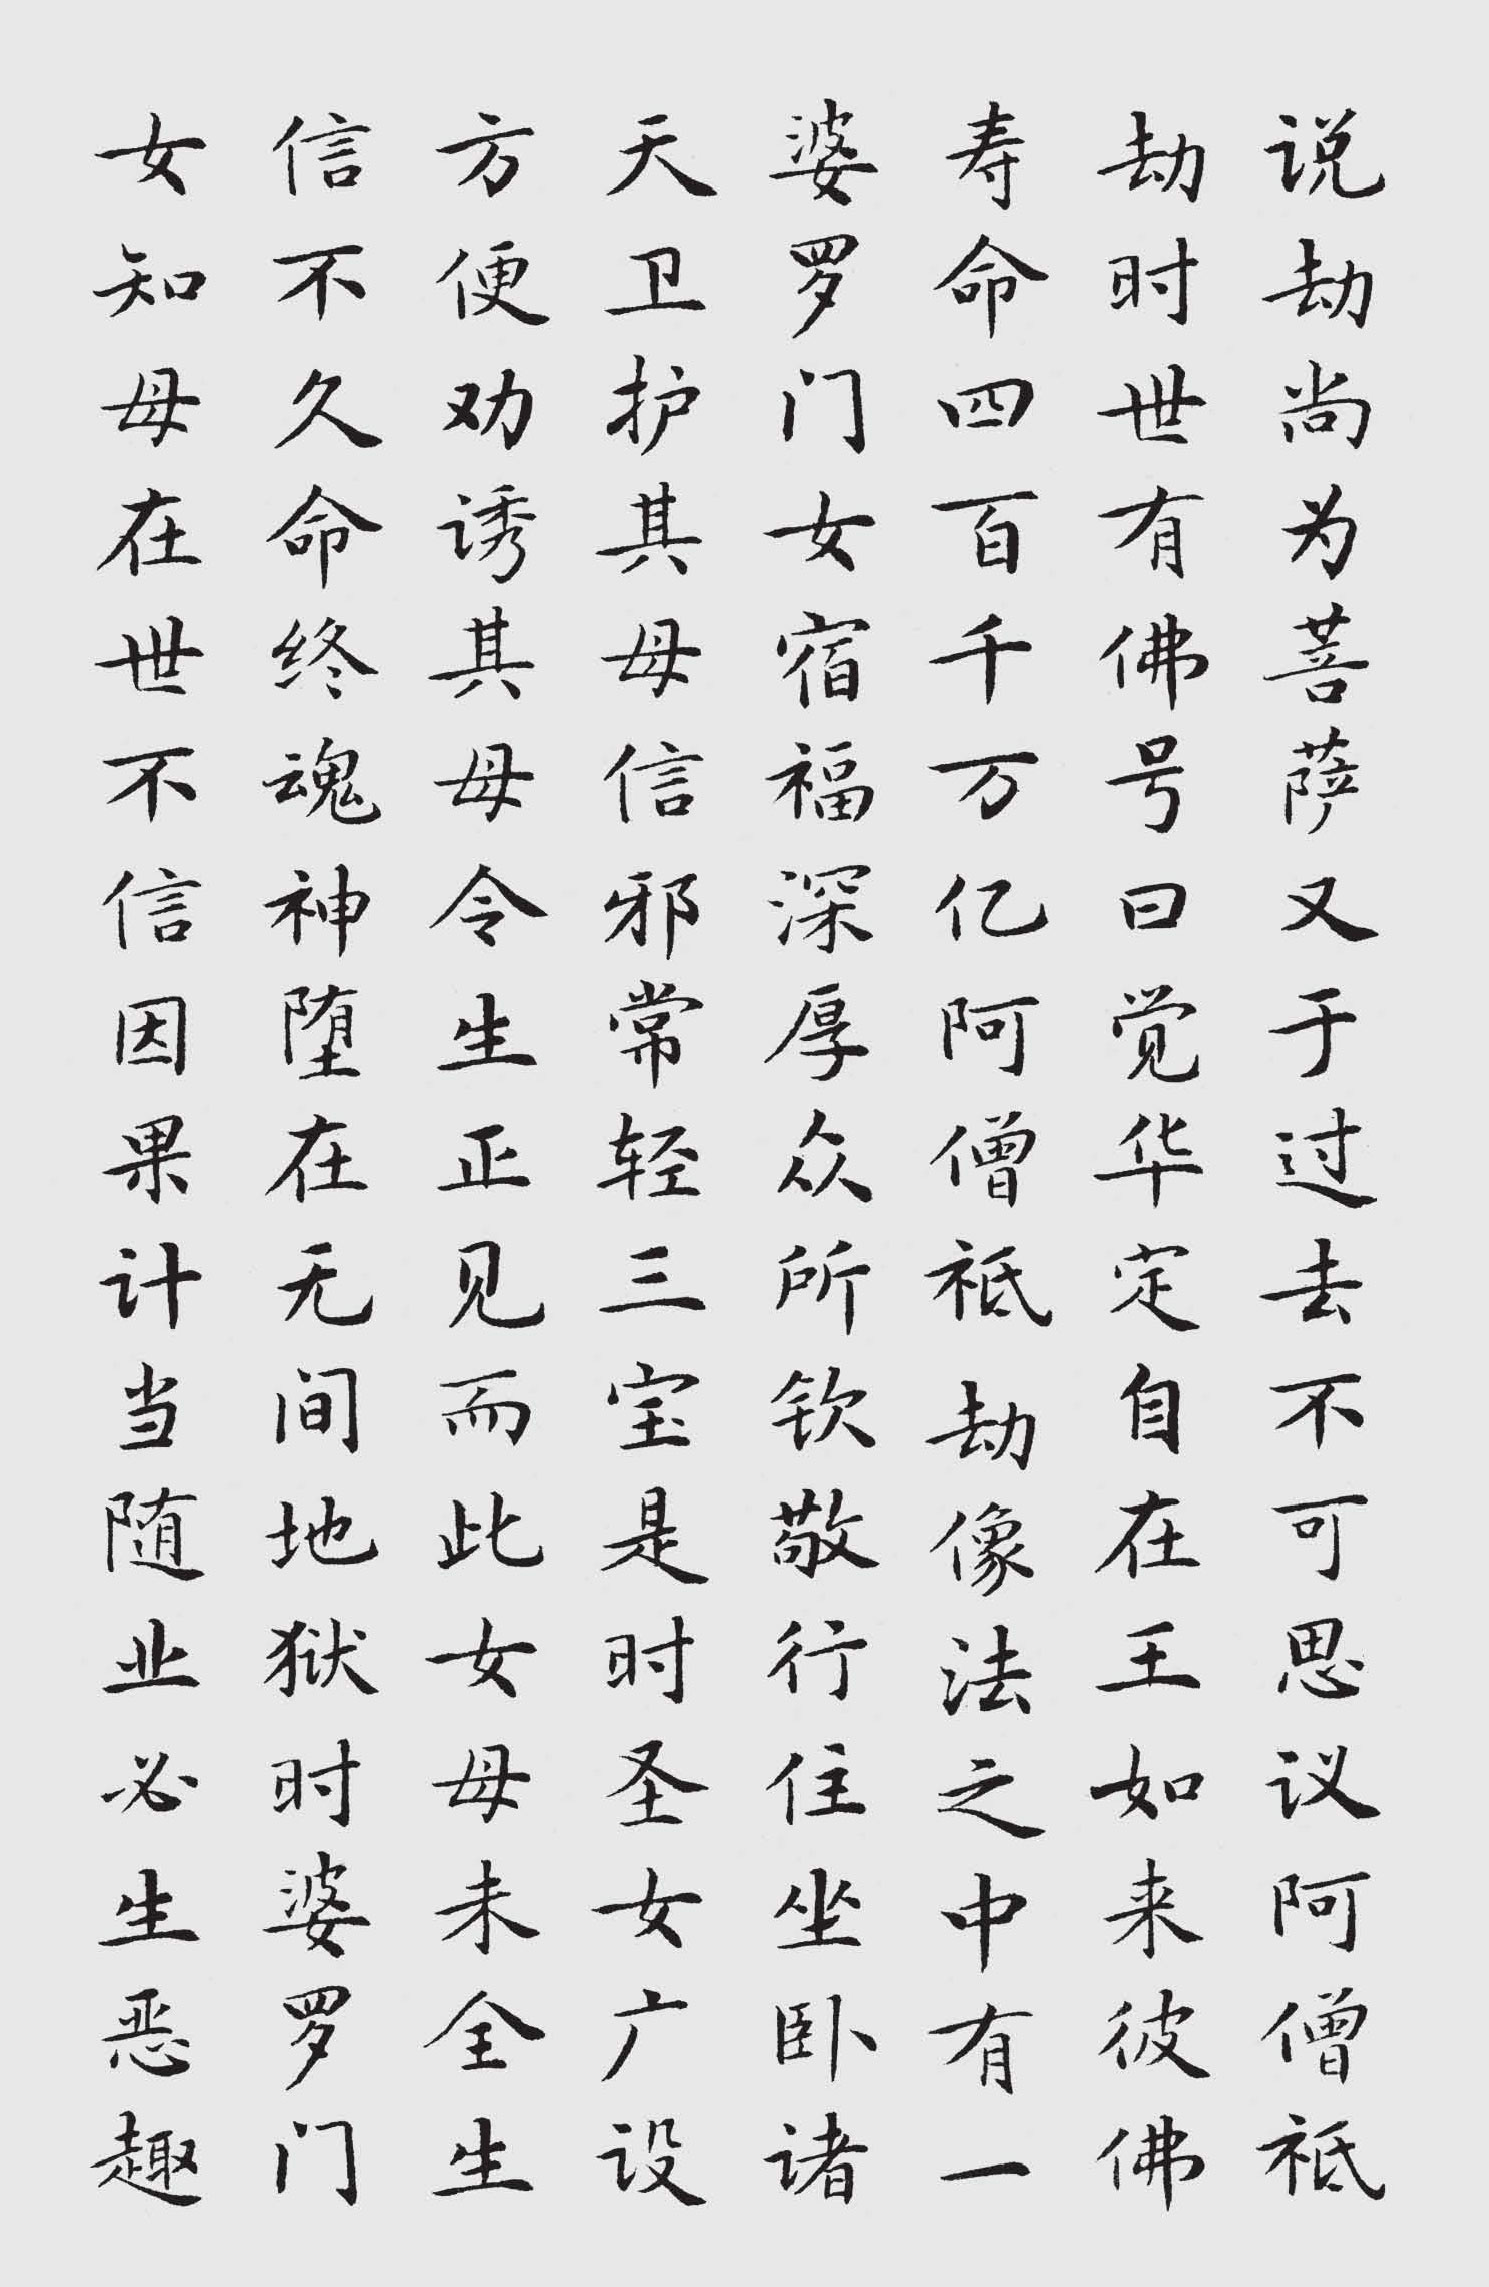 说劫尚为菩萨又于过去不可思议阿僧祇
劫时世有佛号曰觉华定自在王如来彼佛
寿命四百千万亿阿僧祇劫像法之中有一
婆罗门女宿福深厚众所钦敬行住坐卧诸
天卫护其母信邪常轻三宝是时圣女广设
方便劝诱其母令生正见而此女母未全生
信不久命终魂神堕在无间地狱时婆罗门
女知母在世不信因果计当随业必生恶趣